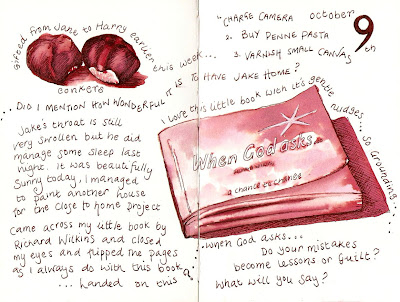 Gifted from Jane to Harry earlier this week...
conkers
"CHARGE CAMERA October 9th
2. BUY PENNE PASTA
3. VARNISH SMALL CANVAS
... DID I MENTION HOW WONDERFUL IT IS TO HAVE JAKE HOME?
I love this little book with it's gentle nudges... so Grounding...
Jake's throat is still
very swollen but he did
manage some sleep last
night. It was beautifully
Sunny today, I managed
to paint another house
for the close to home project
Came across my little book by
Richard Wilkins and closed
my eyes and flipped the pages
as I always do with this book
... Landed on this
When God asks..
a chance to change
..when God asks...
Do your mistakes
become lessons or Guilt?
What will you say?